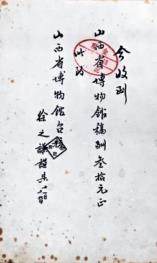 今收到
山西省博物館稿酬叁拾元正
此致
山西省博物館台鑒
徐之謙